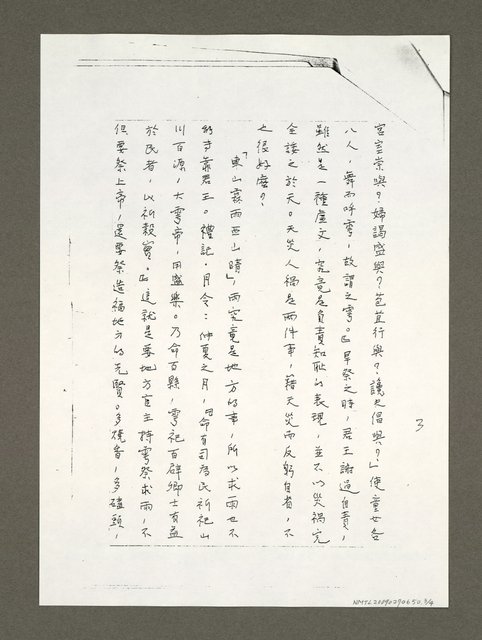 3
宮室崇與?婦謁盛與?苞苴行與?讒夫倡與?」使童女各
八人,舞而呼雩,故謂之雩。』旱祭之時,君王謝過自責,
雖然是一種虛文,究竟是負責知恥的表現,並不以災禍完
全諉之於天。天災人禍是兩件事,藉天災而反躬自省,不
也很好麼?
「東山霧雨西山晴」,雨究竟是地方的事,所以求雨也不
能專靠君王。禮記.月令:『仲夏之月,命有司為民祈祀山
川百源,大雩帝,用盛樂。乃命百縣,雩祀百辟卿士有益
於民者,以祈穀實。』這就是要地方官主持雩祭求雨,不
但要祭上帝,還要祭造福地方的先賢。多燒香,多磕頭,
NMTL20090290650 3/4